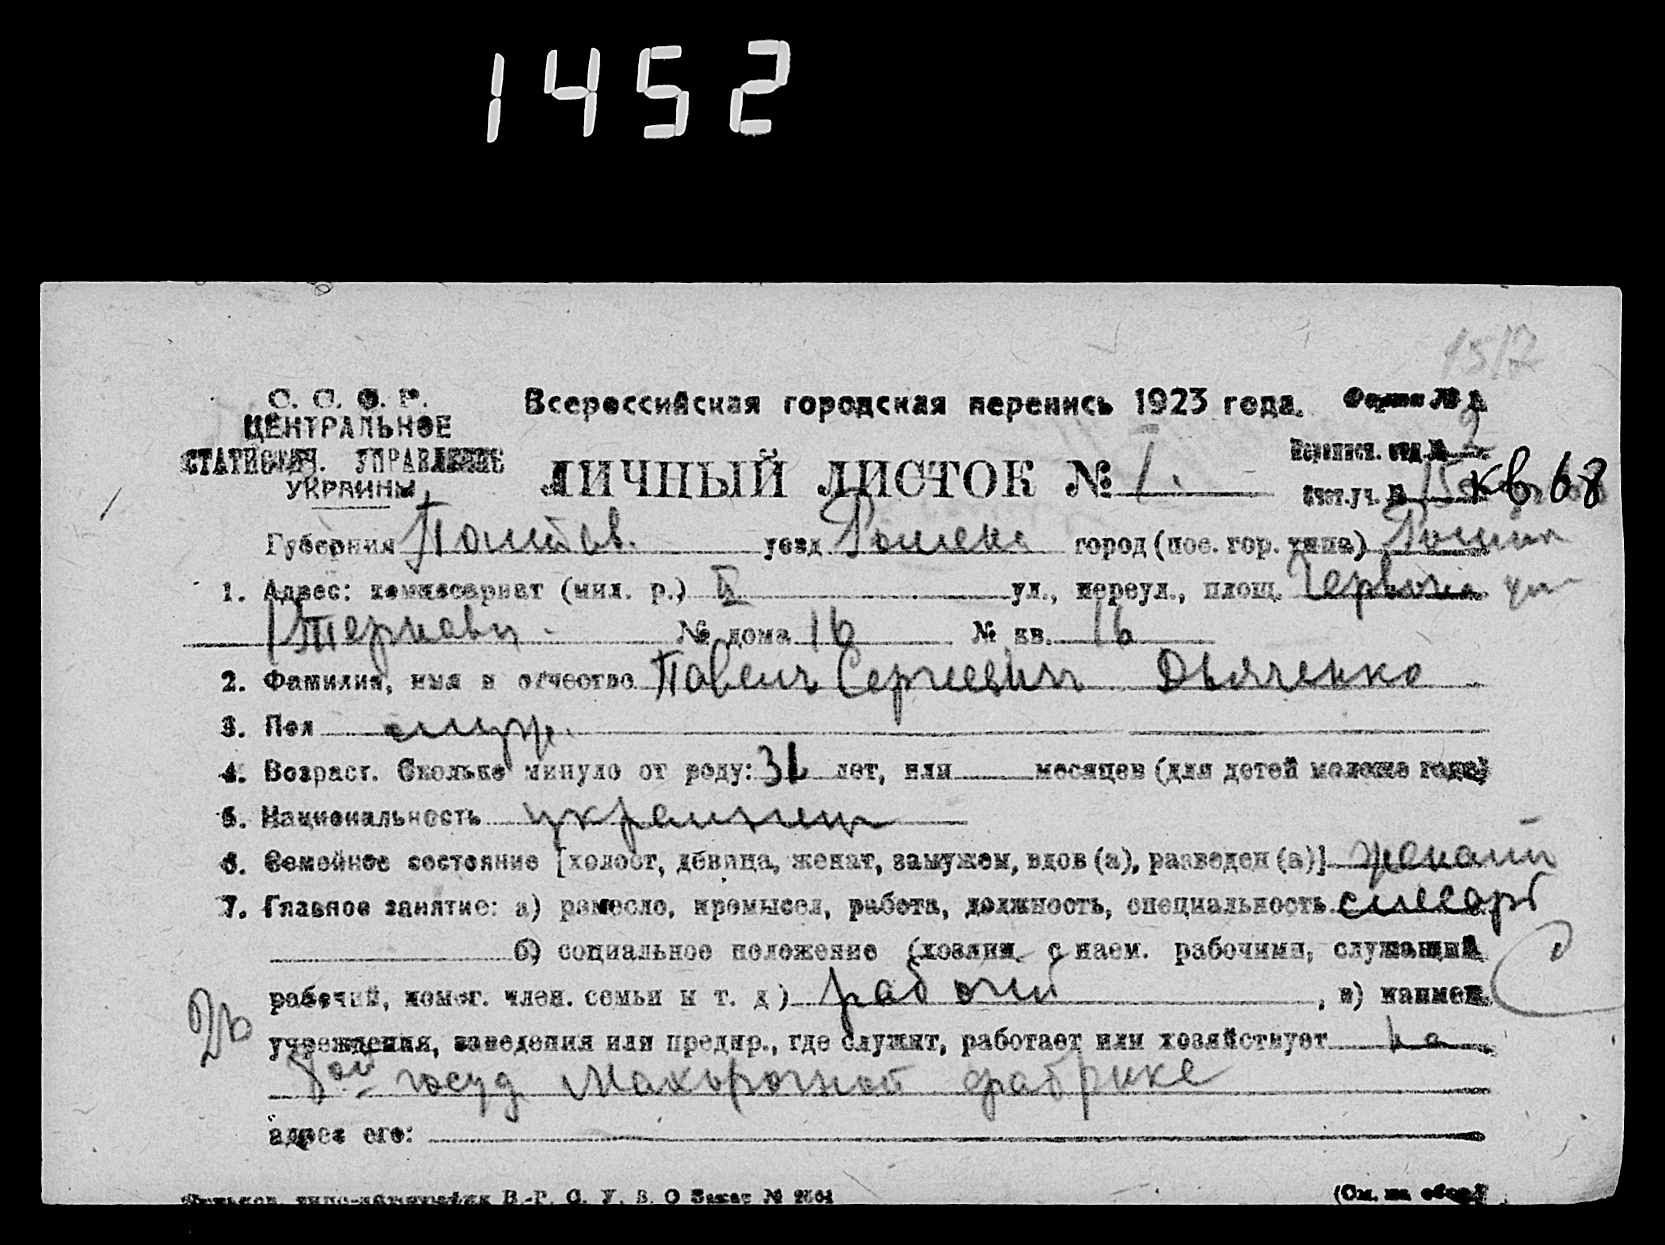 1452
1512
С. С. С. Р. Всероссийская городская перепись 1923 года. Форма №
ЦЕНТРАЛЬНОЕ
Переписн. отд. № 2
СТАТИСТИЧ. УПРАВЛЕНИЕ ЛИЧНЫЙ ЛИСТОК № 1.
УКРАИНЫ. Счет. уч. № 15 кв 68
Губерния Полтав. уезд Роменс город (пос. гор. типа) Ромны
1. Адрес: комиссариат (мил. р.) ул., переул., площ. Червона
№ дома 16 № кв. 16
2. Фамилия, имя и отчество Павелъ Сергеевичъ Дьяченко
3. Пол муж.
4. Возраст. Сколько минуло от роду: 31 лет, или месяцев (для детей моложе года)
5. Национальность украинец
6. Семейное состояние [холост, девица, женат, замужем, вдов (а), разведен (а)] женатый
7. Главное занятие: а) ремесло, промысел, работа, должность, специальность слесарь
б) социальное положение (хозяин с наем. рабочими, служащий
рабочий, помог. член. семьи и т. д.) рабочий, в) наимен.
учреждения, заведения или предпр., где служит, работает или хозяйствует на
8ой госуд Махорочной фабрике
адрес его:
В.-Г. С. У. В. О Заказ № (См. на обор.)